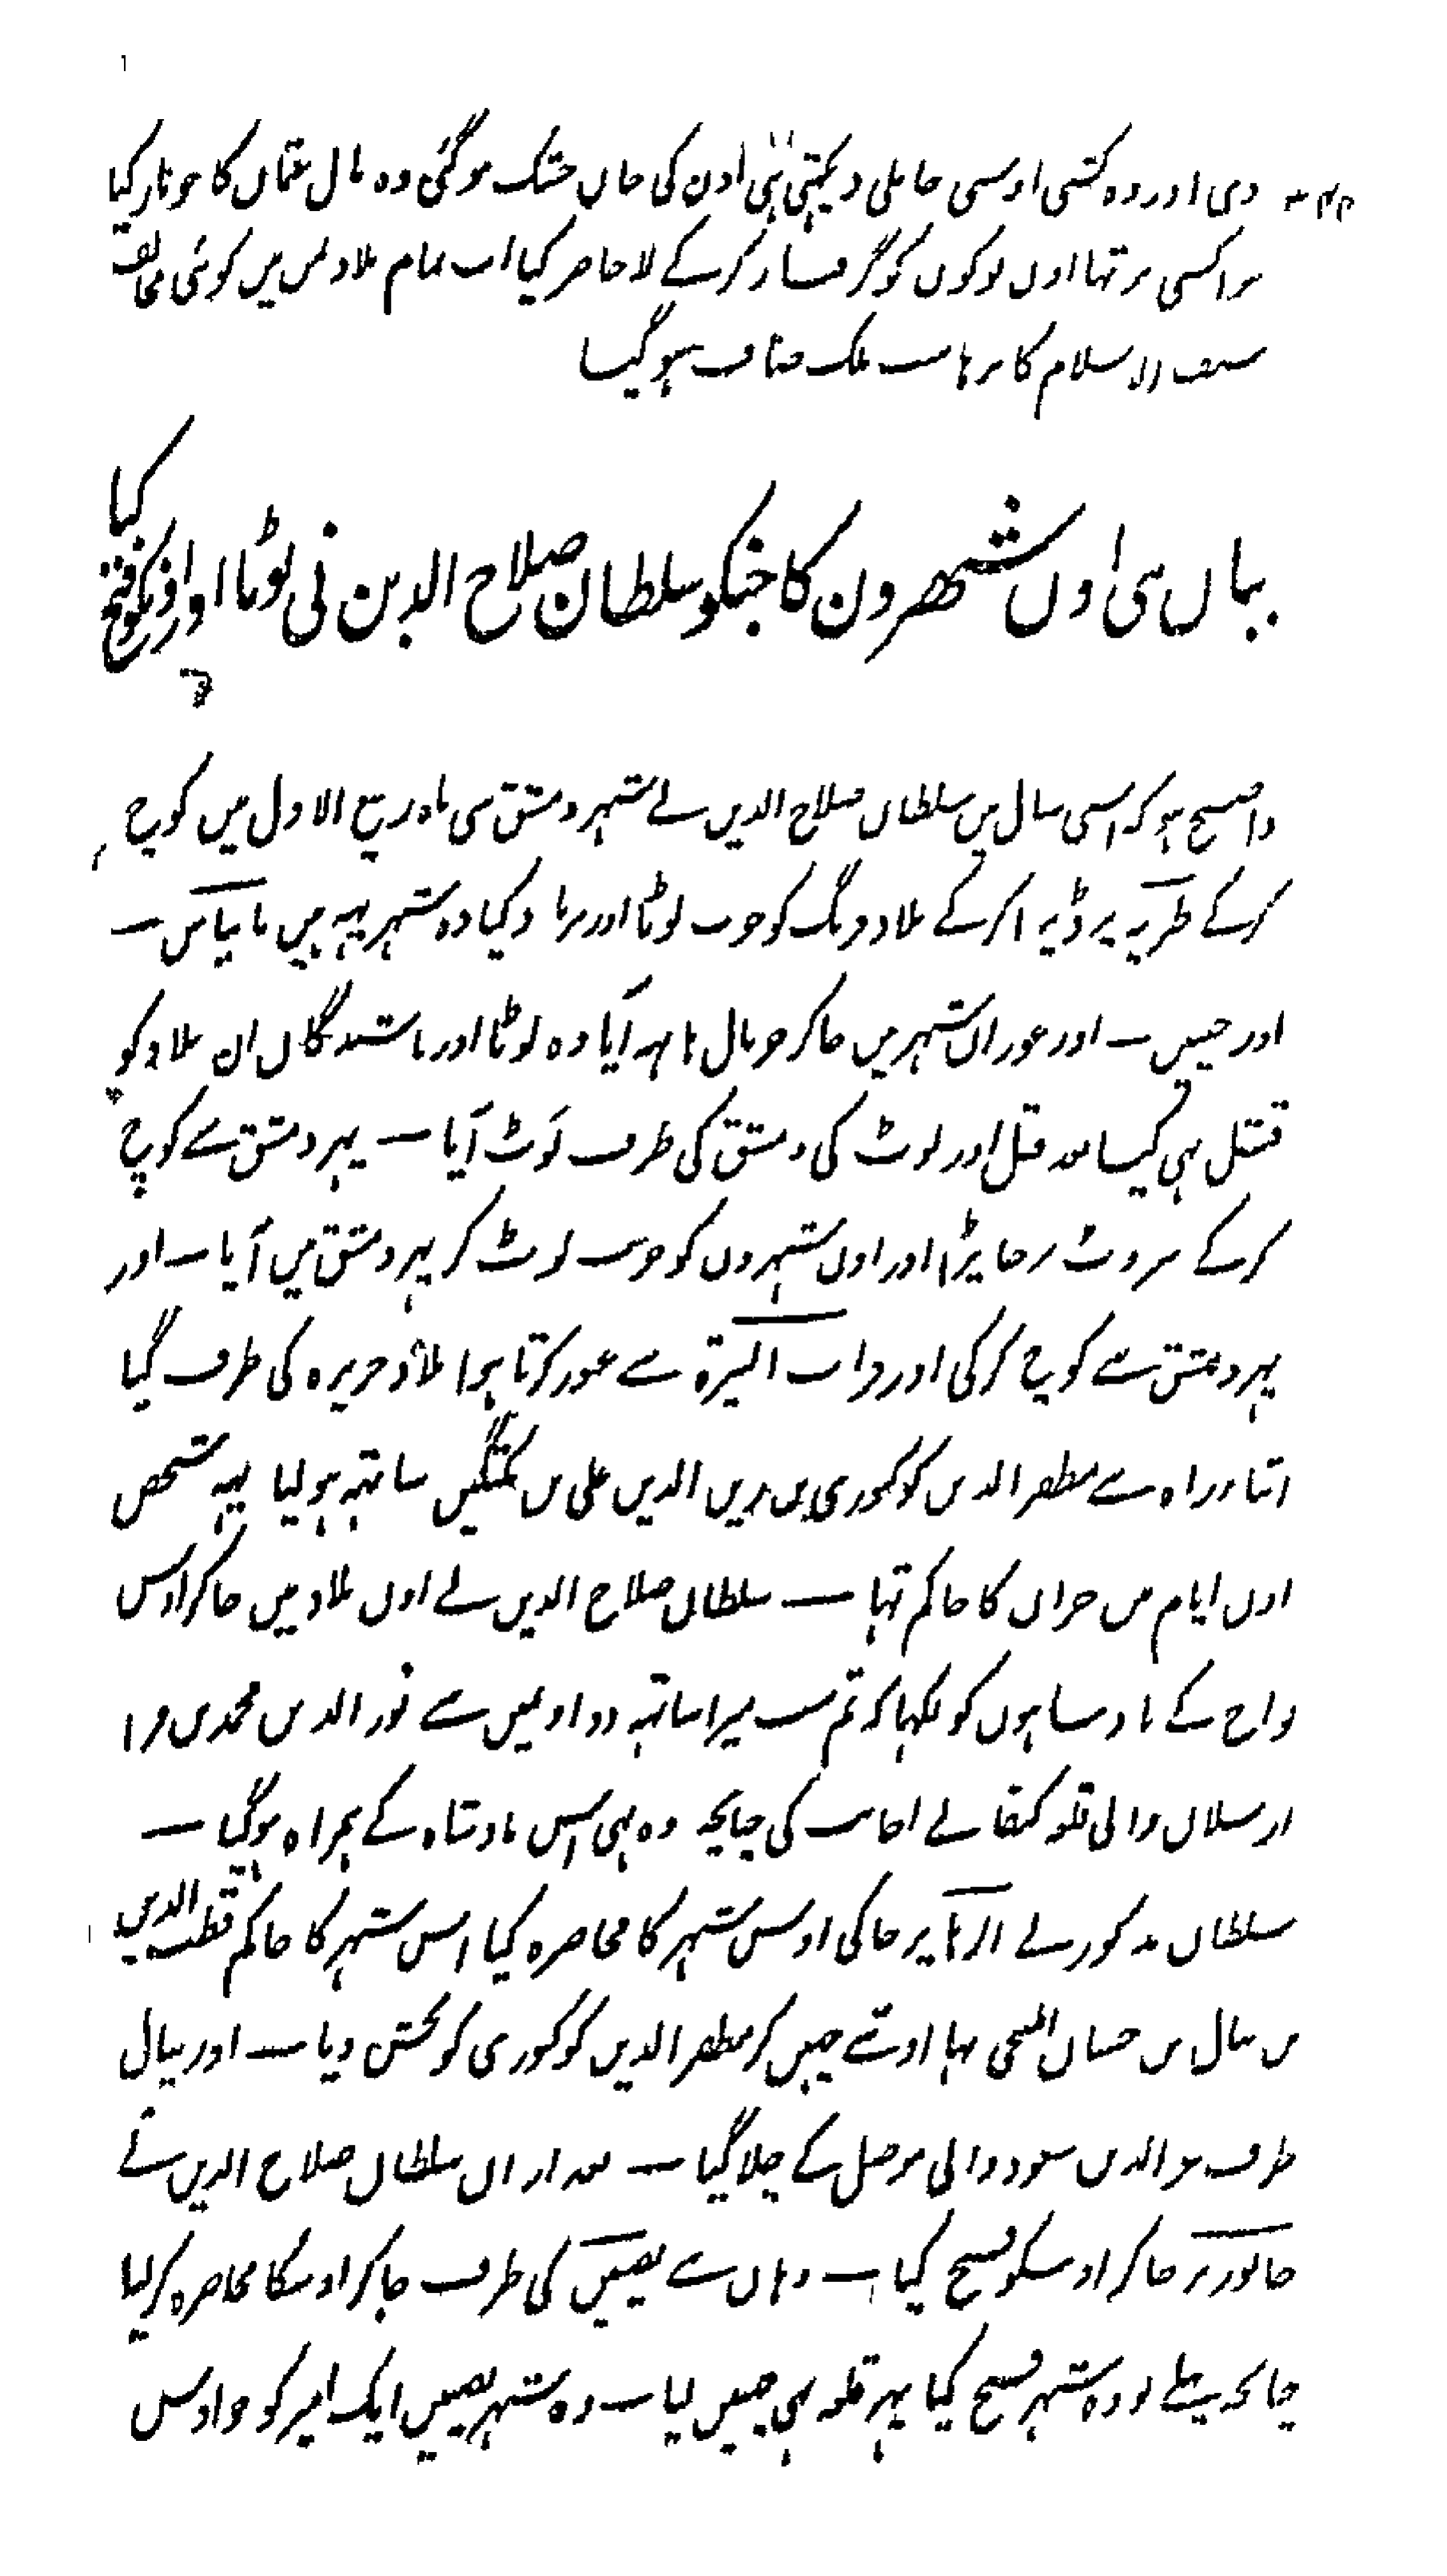 دی اور وہ کشتی اوسی جا ملی دیکہتی ہی اون کی جان خشک ہو گئی وہ مال عثمان کا جو بار کیا
ہوا کشتی پر تہا اون لوگوں کو گرفتار کر کے لا حاضر کیا اب تمام بلاد یمن میں کوئی مخالف
سیف الاسلام کا نرہا سب ملک صاف ہو گیا
بیان ہی اون شہرون کا جنکو سلطان صلاح الدین نی لوٹا اور اونکو فتح کیا
واضح ہو کہ اسی سال میں سلطان صلاح الدین نے شہر دمشق سی ماہ ربیع الاول میں کوچ
کر کے طبریہ پر ڈیرا کر کے بلاد فرنگ کو خوب لوٹا اور برباد کیا وہ شہر یہہ ہیں بانیاس —
اور جینین — اور غور ان شہر میں جا کر جو مال ہاتہہ آیا وہ لوٹا اور باشندگان ان بلاد کو
قتل بہی کیا بعد قتل اور لوٹ کی دمشق کی طرف لوٹ آیا — پہر دمشق سے کوچ
کر کے بیروت پر جا پڑا اور اون شہروں کو خوب لوٹ کر پہر دمشق میں آیا — اور
پہر دمشق سے کوچ کر کی اور البیرۃ سے عبور کرتا ہوا بلاد جزیرہ کی طرف گیا
اثناء راہ سے مظفر الدین کوکبوری بن زین الدین علی بن کمتگین ساتہہ ہو لیا یہہ شخص
اون ایام میں حران کا حاکم تہا — سلطان صلاح الدین نے اون بلاد میں جا کر اوس
نواح کے بادشاہوں کو لکہا کہ تم سب میرا ساتہہ دو اونمیں سے نور الدین محمد بن قرا
ارسلان والی قلعہ کیفا نے اجابت کی چنانچہ وہ بہی اس بادشاہ کے ہمراہ ہو گیا —
سلطان مذکور نے الرہا پر جا کی اوس شہر کا محاصرہ کیا اس شہر کا حاکم قطب الدین
بن ینال بن حسان المنبجی تہا اوسے چہین کر مظفر الدین کوکبوری کو بخش دیا — اور ینال
طرف عز الدین مسعود والی موصل کے چلا گیا — بعد ازاں سلطان صلاح الدین نے
خابور پر جا کر اوسکو فتح کیا — وہاں سے نصیبین کی طرف جا کر اوسکا محاصرہ کر لیا
چنانچہ پہلے تو وہ شہر فتح کیا پہر قلعہ بہی چہین لیا — وہ شہر نصیبین ایک امیر کو جو اوس